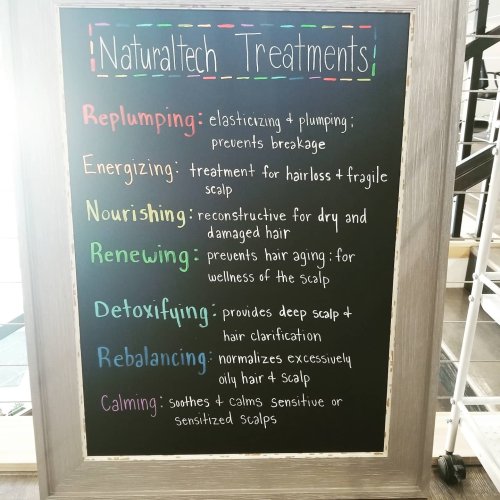 Naturaltech Treatments
Replumping: elasticizing & plumping;
prevents breakage
Energizing: treatment for hairloss & fragile
scalp
Nourishing: reconstructive for dry and
damaged hair
Renewing: prevents hair aging; for
wellness of the scalp
Detoxifying: provides deep scalp &
hair clarification
Rebalancing: normalizes excessively
oily hair & scalp
Calming: soothes & calms sensitive or
sensitized scalps